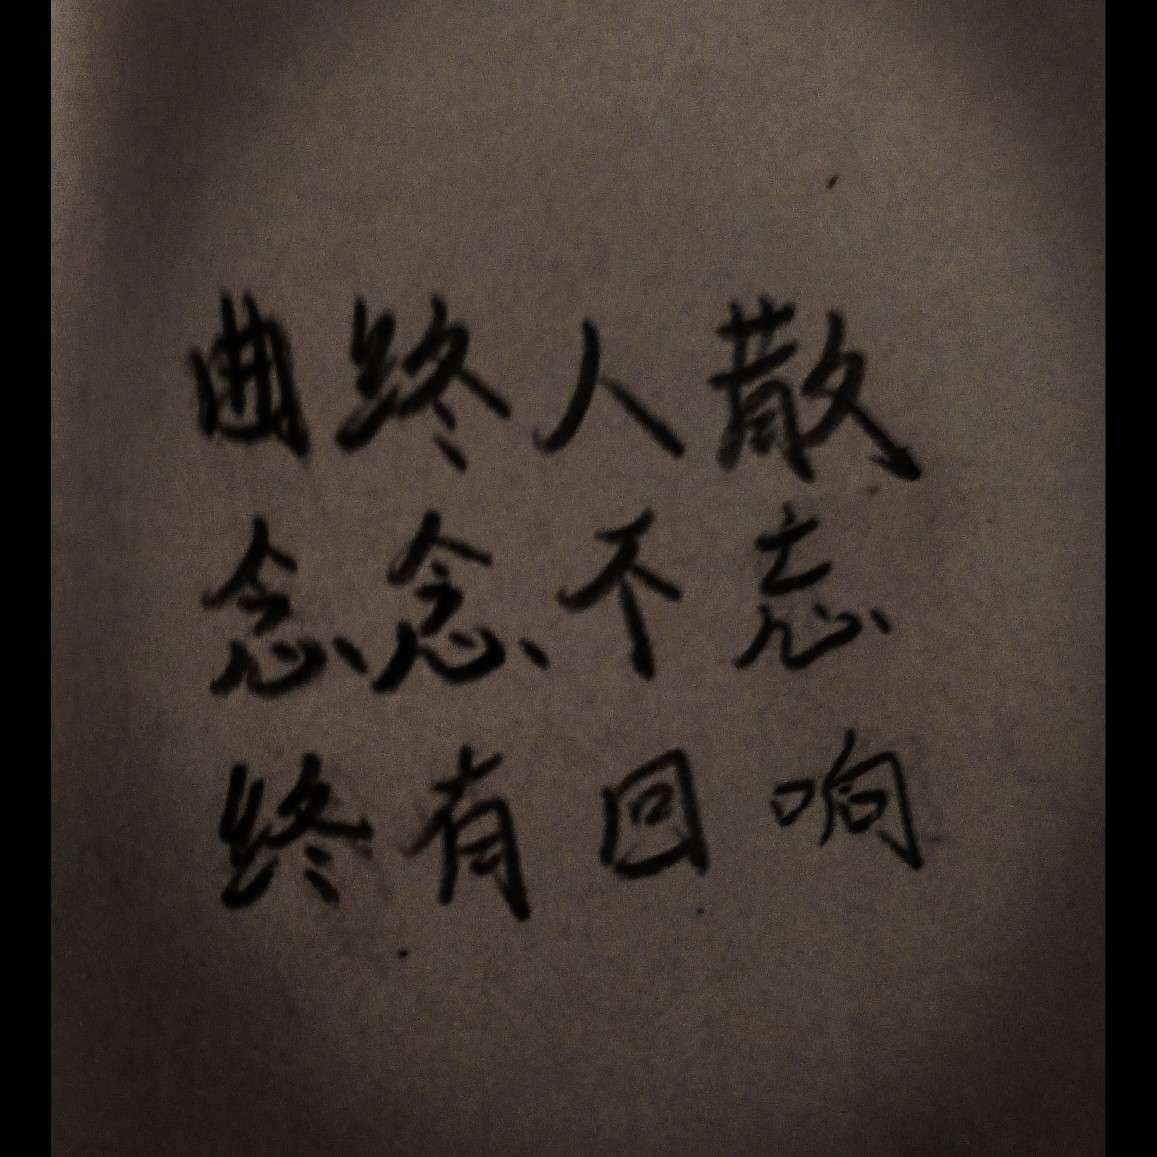 曲终人散
念念不忘
终有回响